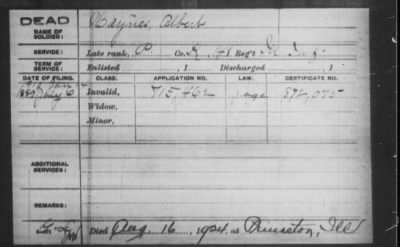 DEAD
NAME OF SOLDIER: Haynes, Albert
SERVICE: Late rank, P Co. Reg't Inf.
TERM OF SERVICE: Enlisted , 1 Discharged , 1
DATE OF FILING. CLASS. APPLICATION NO. LAW. CERTIFICATE NO.
July 6 Invalid, 715,462
Widow,
Minor,
ADDITIONAL SERVICES:
REMARKS:
Died Aug 16, 1924, at Princeton, Ill